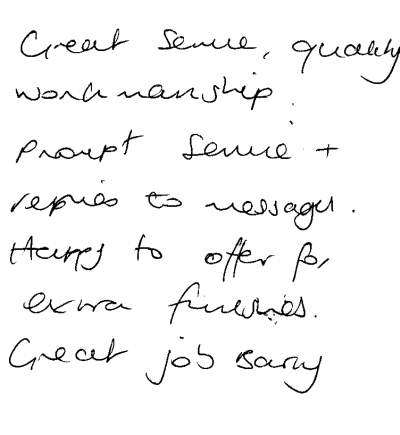 Great service, quality
workmanship.
Prompt service +
replies to messages.
Happy to offer for
extra finishes.
Great job Barry